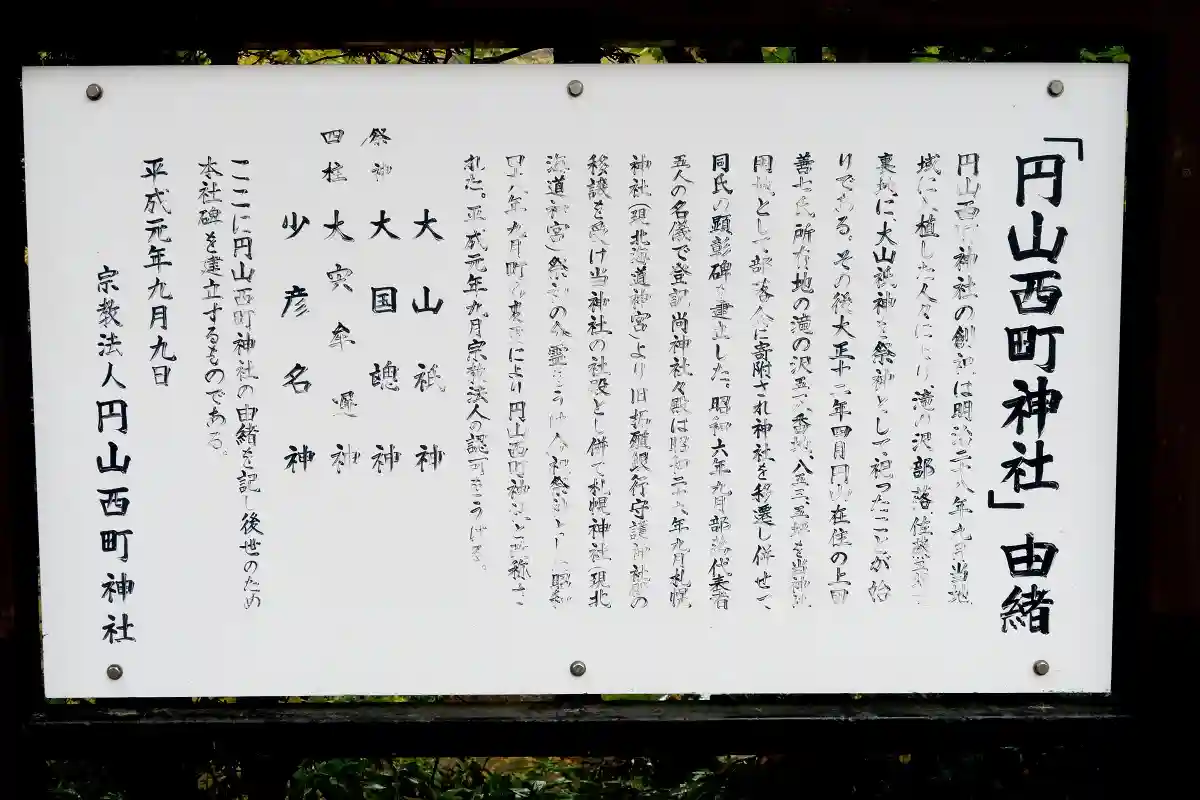 「円山西町神社」由緒
円山西町神社の創祀は明治二十八年九月当地
域に入植した人々により滝の沢部落
裏地に大山祇神を祭神として祀ったことが始
りである。その後大正十二年四月円山在住の上田
善七氏所有地の滝の沢五六番地、八五三、五坪を
用地として部落会に寄附され神社を移遷し併せて、
同氏の顕彰碑を建立した。昭和六年九月部落代表者
五人の名儀で登記尚神社々殿は昭和二十六年九月札幌
神社(現北海道神宮)より旧拓殖銀行守護神社殿の
移譲を受け当神社の社殿とし併て札幌神社(現北
海道神宮)祭神の分霊をうけ
四八年九月町名変更により円山西町神社と
れた。平成元年九月宗教法人の認可をうける。
大山祇神
祭神 大国魂神
四柱 大穴牟遲神
少彦名神
ここに円山西町神社の由緒を記し後世のため
本社碑を建立するものである。
平成元年九月九日
宗教法人円山西町神社